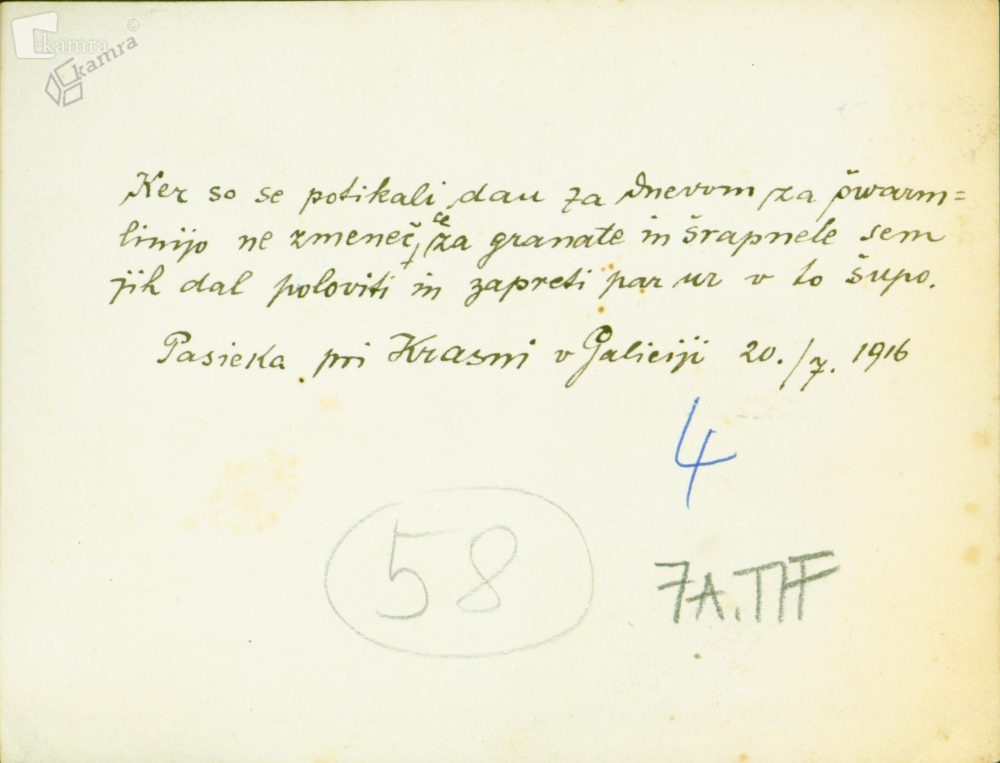 kamra
kamra
Ker so se potikali dan za dnevom za švarm=
linijo ne zmeneč se za granate in šrapnele sem
jih dal poloviti in zapreti par ur v to šupo.
Pasieka pri Krasni v Galiciji 20./7. 1916
4
58